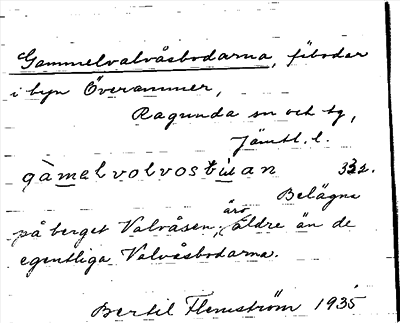 Gammelvalvåsbodarna, fäbodar
i byn Överammer,
Ragunda sn och tg,
Jämtl. l.
gàmelvolvostụan 332.
Belägna
på berget Valvåsen, äro äldre än de
egentliga Valvåsbodarna.
Bertil Flemström 1935